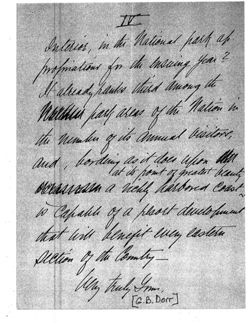 IV
Interior, in the National park ap-
propriations for the ensuing year?
It already ranks third among the
park areas of the Nation in
the number of its annual visitors,
and, bordering as it does upon
at its point of greatest beauty
a richly harbored coast
is capable of a resort development
that will benefit every eastern
section of the Country—
Very truly Yours,
[G.B. Dorr]